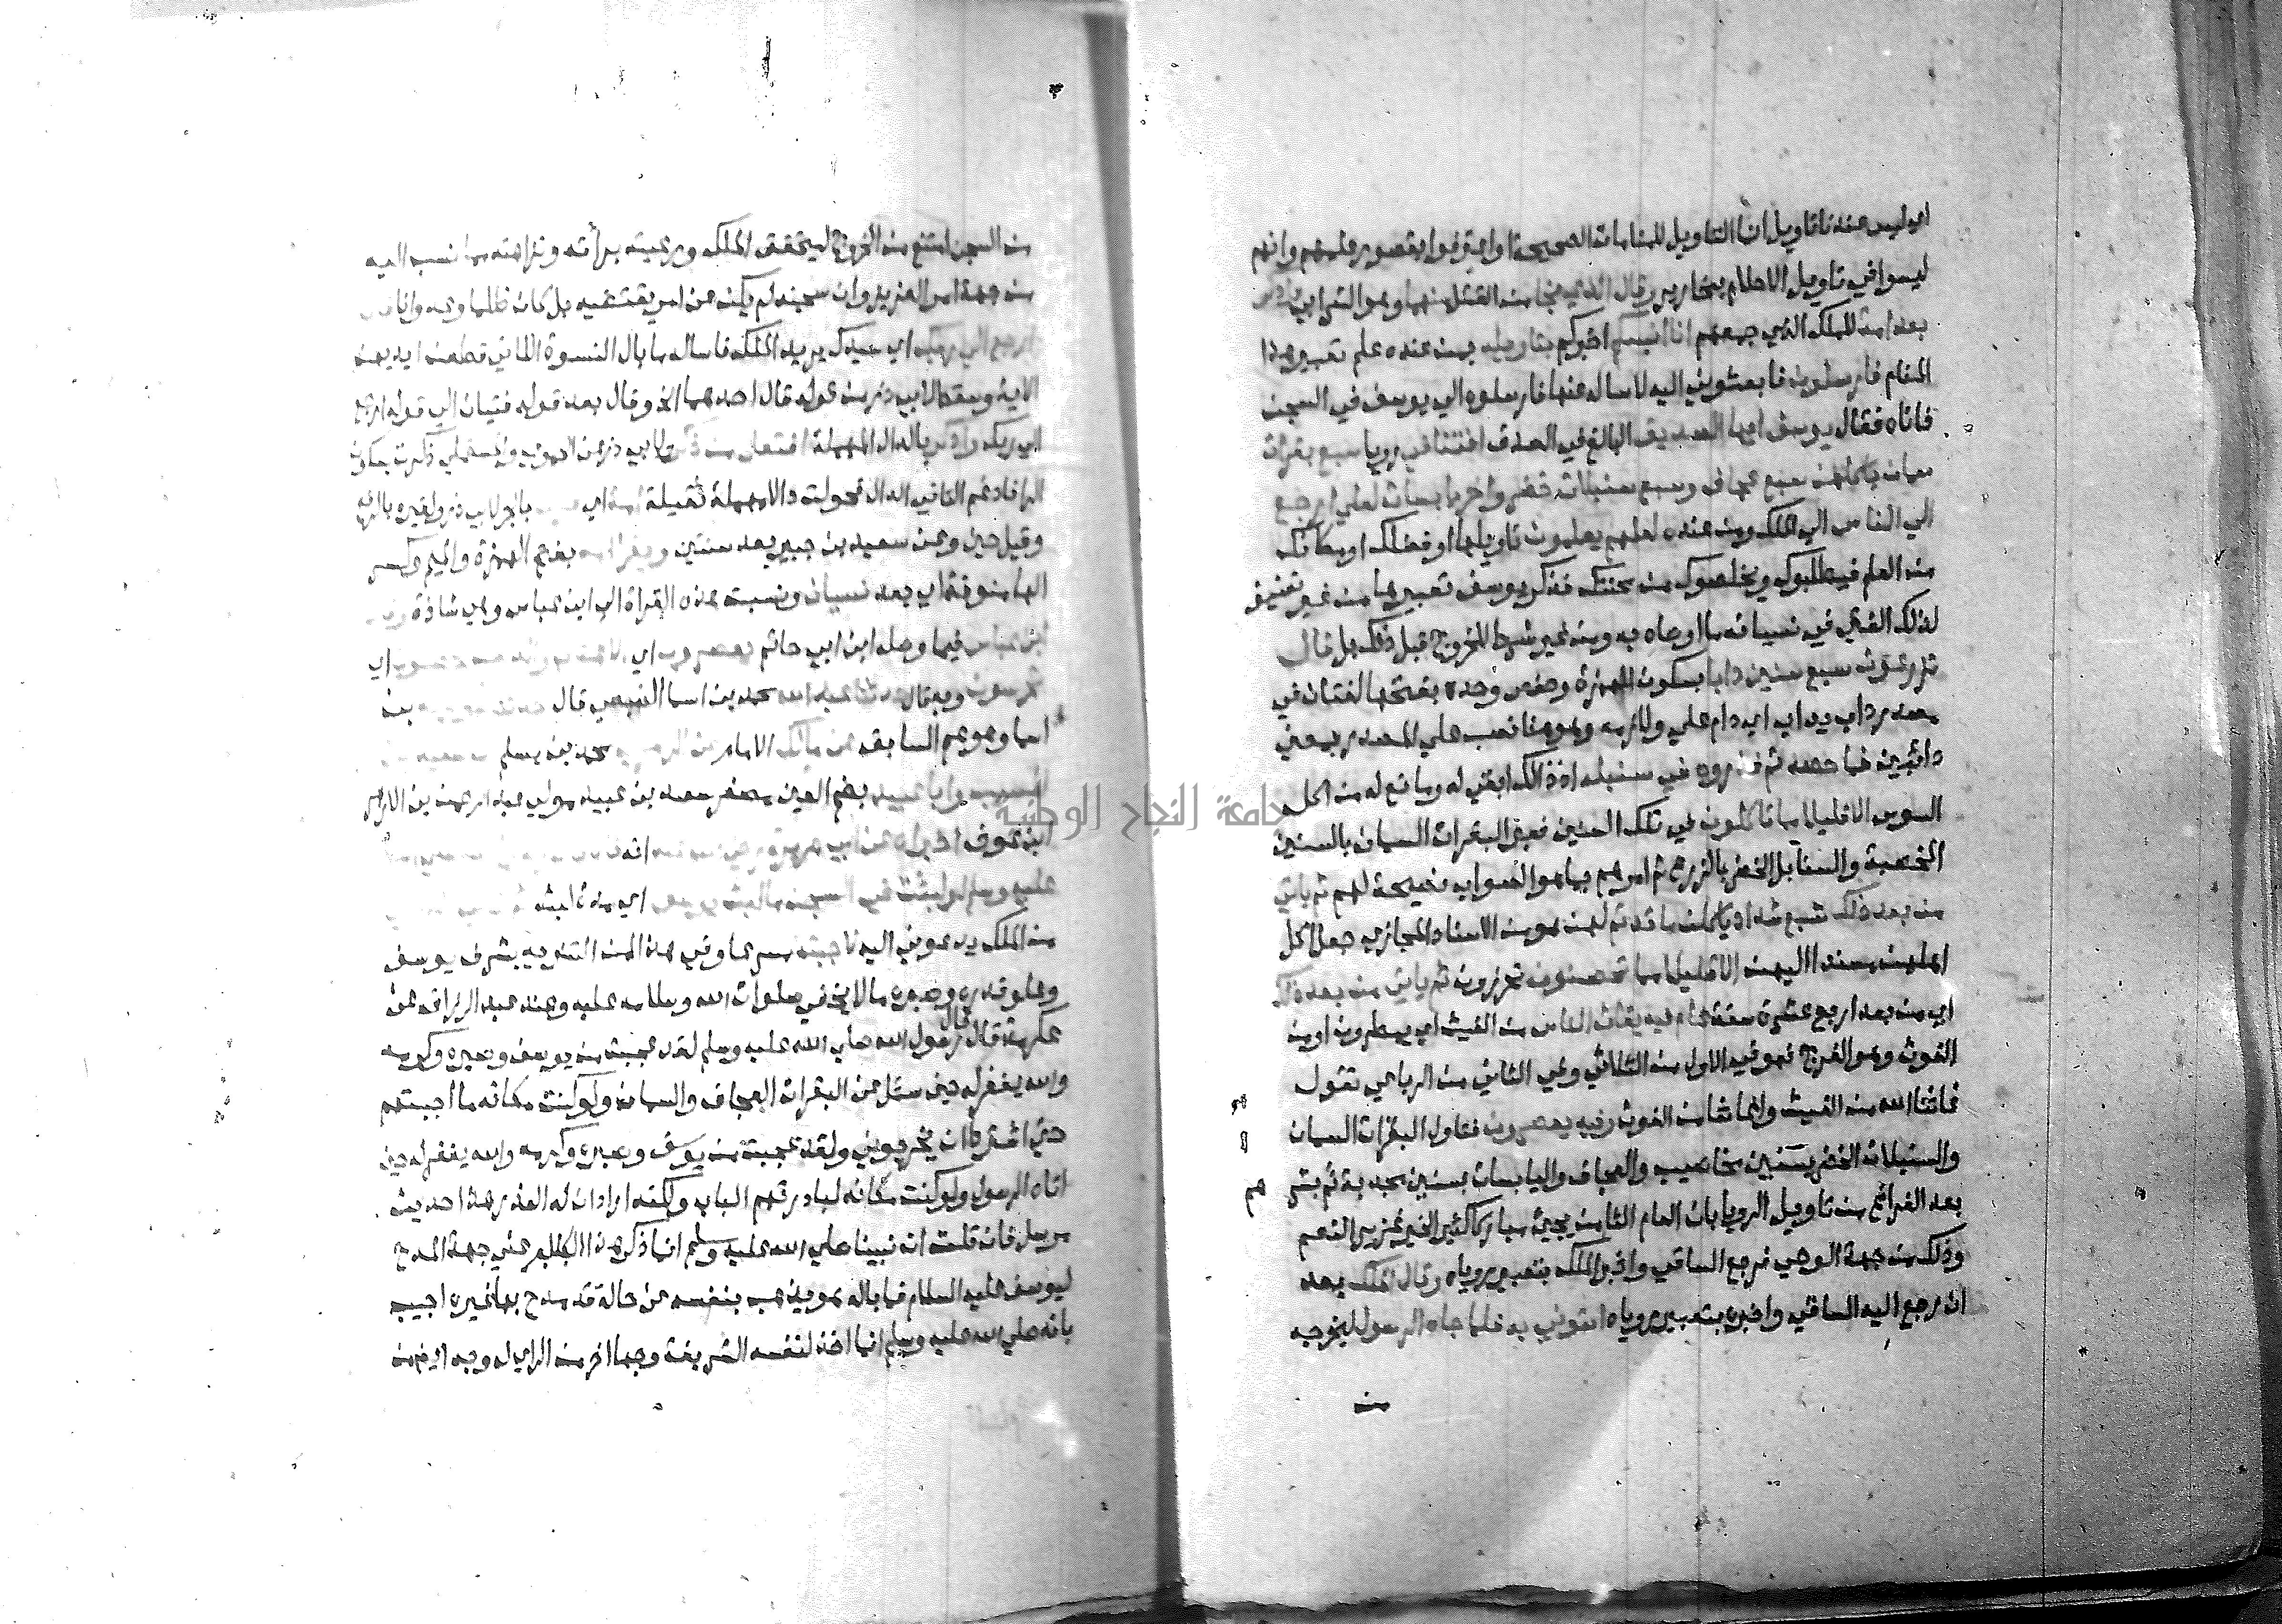 اي ليس عندنا تاويل انما التاويل للمنامات الصحيحة او اعترفوا بقصور علمهم وانهم
ليسوا في تاويل الاحلام بنحارير وقال الذي نجا من القتل منهما وهو الشرابي وادكر
بعد امة للملك الذي جمعهم انا انبيكم اخبركم بتاويله بمن عنده علم تعبير هذا
المنام فارسلون فابعثوني اليه لاساله عنها فارسلوه الي يوسف في السجن
فاتاه فقال يوسف ايها الصديق البالغ في الصدق افتنا في رويا سبع بقرات
سمان ياكلهن سبع عجاف وسبع سنبلات خضر واخر يابسات لعلي ارجع
الي الناس الي الملك ومن عنده لعلهم يعلمون تاويلها او فضلك او مكانك
من العلم فيطلبوك ويخلصوك من محنتك فذكر يوسف تعبيرها من غير تعنيف
لذلك الفتي في نسيانه ما اوصاه به ومن غير شرط للخروج قبل ذلك بل قال
تزرعون سبع سنين دابا بسكون الهمزة وحفص وحده بفتحها لغتان في
مصدر داب يداب اي دام علي ولازمه وهو هنا نصب علي المصدر بمعني
دائبين فما حصدتم فذروه في سنبله اذ ذالك ابقي له ومانع له من اكل
السوس الا قليلا مما تاكلون في تلك السنين فعبر البقرات السمان بالسنين
المخصبة والسنابل الخضر بالزرع ثم امرهم بما هو الصواب نصيحة لهم ثم ياتي
من بعد ذلك سبع شداد ياكلن ما قدمتم لهن هو من الاسناد المجازي جعل اكل
اهلهن مسندا اليهن الا قليلا مما تحصنون تحرزون ثم ياتي من بعد ذلك
اي من بعد اربع عشرة سنة عام فيه يغاث الناس من الغيث اي يمطرون او من
الغوث وهو الفرج فهو في الاول من الثلاثي وفي الثاني من الرباعي تقول
غاثنا الله من الغيث واغاثنا من الغوث وفيه يعصرون فتاول البقرات السمان
والسنبلات الخضر بسنين مخاصيب والعجاف واليابسات بسنين مجدبة ثم بشرهم
بعد الفراغ من تاويل الرويا بان العام الثامن يجيئ مباركا كثير الخير غزير النعم
وذلك من جهة الوحي فرجع الساقي واخبر الملك بتعبير روياه وقال الملك بعد
ان رجع اليه الساقي واخبره بتعبير روياه ائتوني به فلما جاه الرسول ليخرجه
من
من السجن امتنع من الخروج ليتحقق الملك ورعيته براته ونزاهته مما نسب اليه
من جهة امراة العزيز وان سجنه لم يكن عن امر يقتضيه بل كان ظلما وعدوانا
ارجع الي ربك اي سيدك يريد الملك فاساله ما بال النسوة اللاتي قطعن ايديهن
الاية وسقط لابي ذر من قوله قال احدهما الخ وقال بعد قوله فتيان الي قوله ارجع
الي ربك وادكر بالدال المهملة افتعل من ذكر لابي ذر عن الحموي والمستملي ذكرت بسكون
الرا فادغم التا في الدال فحولت دالا مهملة ثقيلة امة اي بالجر لابي ذر ولغيره بالرفع
وقيل حين وعن سعيد بن جبير بعد سنين ويقرا امه بفتح الهمزة والميم وكسر
الها منونة اي بعد نسيان ونسبت هذه القراة الي ابن عباس وهي شاذة
ابن عباس فيما وصله ابن ابي حاتم يعصرون اي اي
تحرسون وبه قال حدثنا عبد الله محمد بن اسما الضبعي قال بن
اسما وهو عم السابق عن مالك الامام عن الزهري محمد بن مسلم
المسيب وابا عبيد بضم العين مصغر سعد بن عبيد مولي عبد الرحمن بن الازهر
ابن عوف اخبراه عن ابي هريرة رضي الله عنه انه
عليه وسلم لو لبثت في السجن ما لبث يوسف اي مدة لبثه
من الملك يدعوني اليه لاجبته مسرعا وفي هذا المن التنويه بشرف يوسف
وعلو قدره وصبره ما لا يخفي صلوات الله وسلامه عليه وعند عبد الرزاق عن
عكرمة قال قال رسول الله صلي الله عليه وسلم لقد عجبت من يوسف وصبره وكرمه
والله يغفر له حين سئل عن البقرات العجاف والسمان ولو كنت مكانه ما اجبتهم
حتي اشترط ان يخرجوني ولقد عجبت من يوسف وصبره وكرمه والله يغفر له حين
اتاه الرسول ولو كنت مكانه لبادرتهم الباب ولكنه اراد ان له العذر هذا حديث
مرسل فان قلت ان نبينا صلي الله عليه وسلم انما ذكر هذا الكلام علي جهة المدح
ليوسف عليه السلام فما باله هو يذهب بنفسه عن حالة قد مدح بها غيره اجيب
بانه صلي الله عليه وسلم انما اخذ لنفسه الشريفة وجها اخر من الراي له وجه ايضا من
جامعة النجاح الوطنية